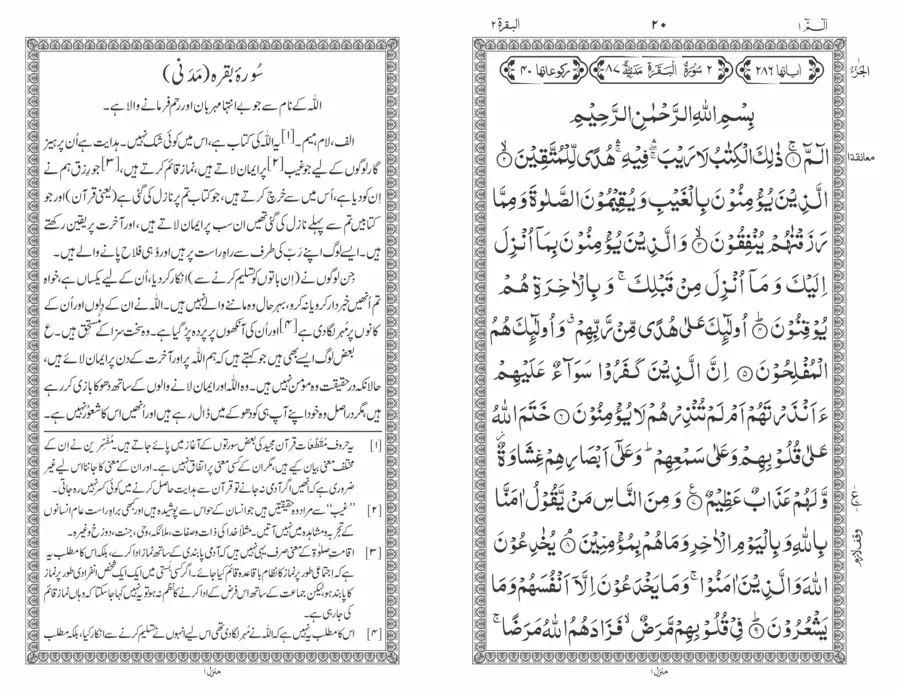 الٓمّٓ ١
٢٠
البقرة ٢
الجزء ١
اٰیاتھا ٢٨٦
٢ سُوْرَةُ الْبَقَرَةِ مَدَنِیَّةٌ ٨٧
رکوعاتھا ٤٠
بِسْمِ اللّٰهِ الرَّحْمٰنِ الرَّحِيْمِ
الٓمّٓ ۚ﴿١﴾ ذٰلِكَ الْكِتٰبُ لَا رَيْبَ ۛ فِيْهِ ۛ هُدًى لِّلْمُتَّقِيْنَ ﴿٢﴾
معانقة ١
الَّذِيْنَ يُؤْمِنُوْنَ بِالْغَيْبِ وَ يُقِيْمُوْنَ الصَّلٰوةَ وَ مِمَّا
رَزَقْنٰهُمْ يُنْفِقُوْنَ ﴿٣﴾ وَ الَّذِيْنَ يُؤْمِنُوْنَ بِمَاۤ اُنْزِلَ
اِلَيْكَ وَ مَاۤ اُنْزِلَ مِنْ قَبْلِكَ ۚ وَ بِالْاٰخِرَةِ هُمْ
يُوْقِنُوْنَ ﴿٤﴾ اُولٰٓىِٕكَ عَلٰى هُدًى مِّنْ رَّبِّهِمْ ۗ وَ اُولٰٓىِٕكَ هُمُ
الْمُفْلِحُوْنَ ﴿٥﴾ اِنَّ الَّذِيْنَ كَفَرُوْا سَوَآءٌ عَلَيْهِمْ
ءَاَنْذَرْتَهُمْ اَمْ لَمْ تُنْذِرْهُمْ لَا يُؤْمِنُوْنَ ﴿٦﴾ خَتَمَ اللّٰهُ
عَلٰى قُلُوْبِهِمْ وَ عَلٰى سَمْعِهِمْ ؕ وَ عَلٰۤى اَبْصَارِهِمْ غِشَاوَةٌ ؗ
وَّ لَهُمْ عَذَابٌ عَظِيْمٌ ﴿٧﴾ وَ مِنَ النَّاسِ مَنْ يَّقُوْلُ اٰمَنَّا
ع
بِاللّٰهِ وَ بِالْيَوْمِ الْاٰخِرِ وَ مَا هُمْ بِمُؤْمِنِيْنَ ۘ﴿٨﴾ يُخٰدِعُوْنَ
وقف لازم
اللّٰهَ وَ الَّذِيْنَ اٰمَنُوْا ۚ وَ مَا يَخْدَعُوْنَ اِلَّاۤ اَنْفُسَهُمْ وَ مَا
يَشْعُرُوْنَ ﴿٩﴾ فِيْ قُلُوْبِهِمْ مَّرَضٌ ۙ فَزَادَهُمُ اللّٰهُ مَرَضًا ۚ
منزل ١
سُورۂ بقرہ (مَدَنی)
اللہ کے نام سے جو بے انتہا مہربان اور رحم فرمانے والا ہے۔
الف، لام، میم۔[۱] یہ اللہ کی کتاب ہے، اس میں کوئی شک نہیں۔ ہدایت ہے اُن پرہیز
گار لوگوں کے لیے جو غیب[۲] پر ایمان لاتے ہیں، نماز قائم کرتے ہیں،[۳] جو رزق ہم نے
اِن کو دیا ہے، اُس میں سے خرچ کرتے ہیں، جو کتاب تم پر نازل کی گئی ہے (یعنی قرآن) اور جو
کتابیں تم سے پہلے نازل کی گئی تھیں ان سب پر ایمان لاتے ہیں، اور آخرت پر یقین رکھتے
ہیں۔ ایسے لوگ اپنے رَبّ کی طرف سے راہِ راست پر ہیں اور وُہی فلاح پانے والے ہیں۔
جن لوگوں نے (اِن باتوں کو تسلیم کرنے سے) انکار کر دیا، اُن کے لیے یکساں ہے، خواہ
تم اُنھیں خبردار کرو یا نہ کرو، بہرحال وہ ماننے والے نہیں ہیں۔ اللہ نے ان کے دِلوں اور اُن کے
کانوں پر مُہر لگا دی ہے[۴] اور اُن کی آنکھوں پر پردہ پڑ گیا ہے۔ وہ سخت سزا کے مُستحق ہیں۔ ع
بعض لوگ ایسے بھی ہیں جو کہتے ہیں کہ ہم اللہ پر اور آخرت کے دن پر ایمان لائے ہیں،
حالانکہ درحقیقت وہ مؤمن نہیں ہیں۔ وہ اللہ اور ایمان لانے والوں کے ساتھ دھوکا بازی کر رہے
ہیں، مگر دراصل وہ خود اپنے آپ ہی کو دھوکے میں ڈال رہے ہیں اور اُنھیں اس کا شعور نہیں ہے۔
[۱] یہ حروفِ مُقطّعات قرآن مجید کی بعض سورتوں کے آغاز میں پائے جاتے ہیں۔ مُفسّرین نے ان کے
مختلف معنی بیان کیے ہیں، مگر ان کے کسی معنی پر اتفاق نہیں ہے۔ اور ان کے معنی کا جاننا اس لیے غیر
ضروری ہے کہ انھیں اگر آدمی نہ جانے تو قرآن سے ہدایت حاصل کرنے میں کوئی کسر نہیں رہ جاتی۔
[۲] ’’غیب‘‘ سے مراد وہ حقیقتیں ہیں جو انسان کے حواس سے پوشیدہ ہیں اور کبھی براہِ راست عام انسانوں
کے تجربہ و مشاہدہ میں نہیں آتیں۔ مثلاً خدا کی ذات و صفات، ملائکہ، وحی، جنت، دوزخ وغیرہ۔
[۳] اقامتِ صلوٰۃ کے معنی صرف یہی نہیں ہیں کہ آدمی پابندی کے ساتھ نماز ادا کرے، بلکہ اس کا مطلب یہ
ہے کہ اجتماعی طور پر نماز کا نظام باقاعدہ قائم کیا جائے۔ اگر کسی بستی میں ایک ایک شخص انفرادی طور پر نماز
کا پابند ہو، لیکن جماعت کے ساتھ اس فرض کے ادا کرنے کا نظم نہ ہو تو یہ نہیں کہا جا سکتا کہ وہاں نماز قائم
کی جا رہی ہے۔
[۴] اس کا مطلب یہ نہیں ہے کہ اللہ نے مُہر لگا دی تھی اس لیے انہوں نے تسلیم کرنے سے انکار کیا، بلکہ مطلب
منزل ١